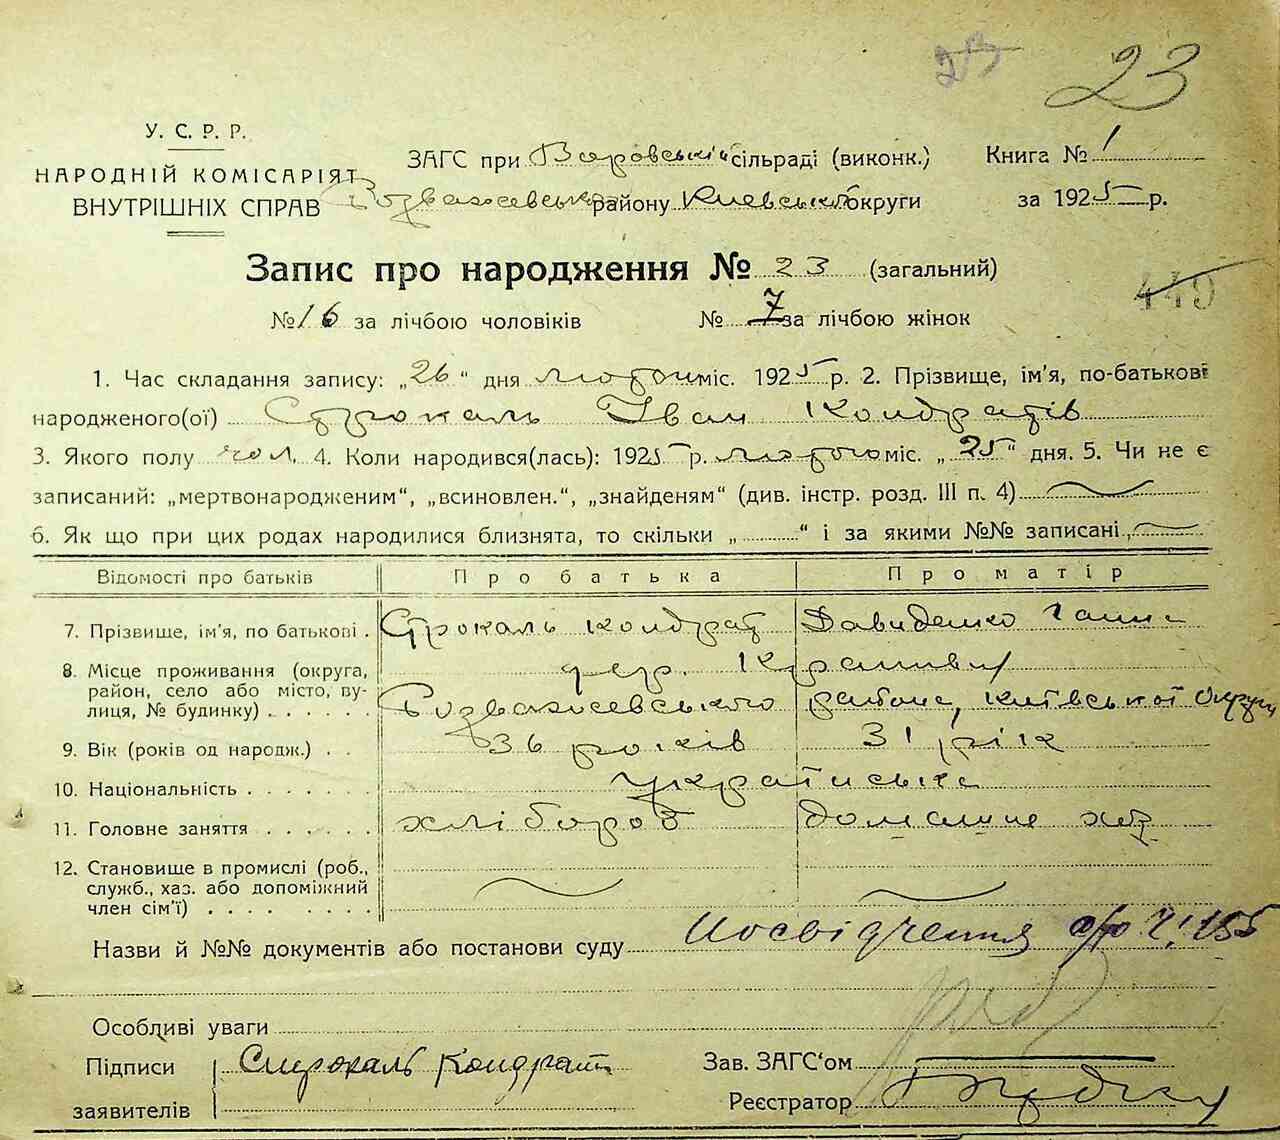 23 23
У. С. Р. Р.
НАРОДНІЙ КОМІСАРІЯТ
ВНУТРІШНІХ СПРАВ
ЗАГС при Варовській сільраді (виконк.) Книга № 1
Розважевськ району Киевської округи за 1925 р.
Запис про народження № 23 (загальний)
449
№ 16 за лічбою чоловіків № 7 за лічбою жінок
1. Час складання запису: „26“ дня лютого міс. 1925 р. 2. Прізвище, ім'я, по-батькові
народженого(ої) Строкаль Іван Кондратів
3. Якого полу чол. 4. Коли народився(лась): 1925 р. лютого міс. „25“ дня. 5. Чи не є
записаний: „мертвонародженим“, „всиновлен.“, „знайденям“ (див. інстр. розд. III п. 4)
6. Як що при цих родах народилися близнята, то скільки „ “ і за якими №№ записані
Відомості про батьків Про батька Про матір
7. Прізвище, ім'я, по батькові . Строкаль Кондрат Давиденко Ганна
8. Місце проживання (округа, район, село або місто, вулиця, № будинку) . . . . . .
Розважевського района, київської округи
9. Вік (років од народж.) . . 36 років 31 рік
10. Національність . . . . . . . українська
11. Головне заняття . . . . . . хлібороб домашне хаз
12. Становище в промислі (роб.,
служб., хаз. або допоміжний
член сім'ї) . . . . . . . .
Назви й №№ документів або постанови суду Посвідчення 155
Особливі уваги
Підписи Строкаль Кондрат Зав. ЗАГС'ом
заявителів Реєстратор